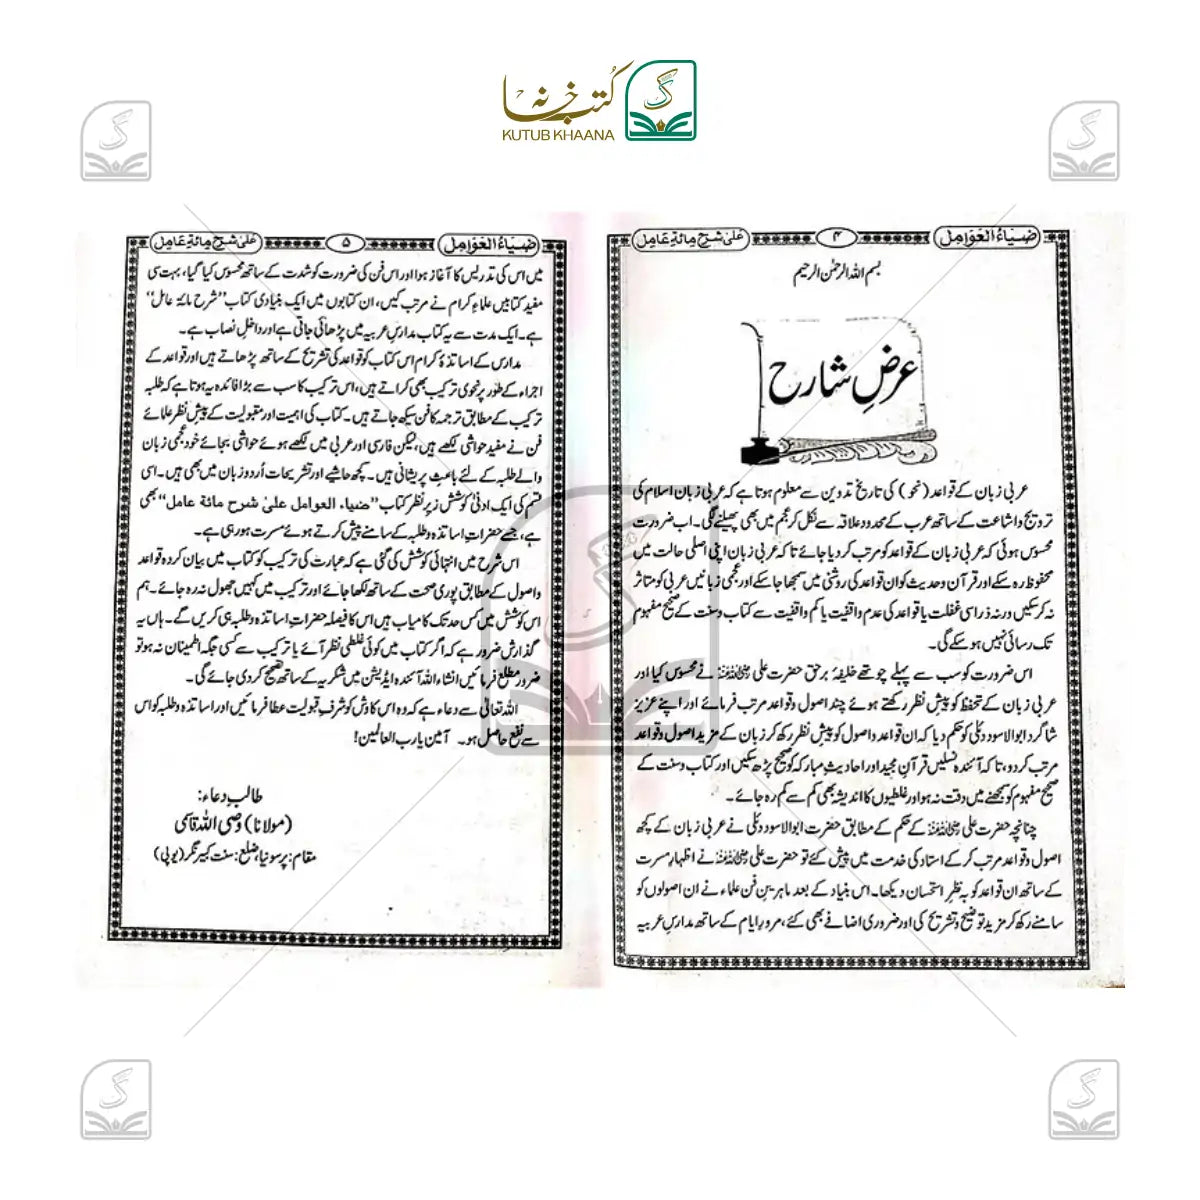 کتب خانہ
KUTUB KHAANA
ضیاءُ العَوامِل
۴
علیٰ شرح مِائۃ عَامِل
بسم اللہ الرحمٰن الرحیم
عرضِ شارح
عربی زبان کے قواعد (نحو) کی تاریخِ تدوین سے معلوم ہوتا ہے کہ عربی زبان اسلام کی
ترویج و اشاعت کے ساتھ عرب کے محدود علاقہ سے نکل کر عجم میں بھی پھیلنے لگی۔ اب ضرورت
محسوس ہوئی کہ عربی زبان کے قواعد کو مرتب کر دیا جائے تاکہ عربی زبان اپنی اصلی حالت میں
محفوظ رہ سکے اور قرآن و حدیث کو ان قواعد کی روشنی میں سمجھا جا سکے اور عجمی زبانیں عربی کو متاثر
نہ کر سکیں ورنہ ذرا سی غفلت یا قواعد کی عدم واقفیت یا کم واقفیت سے کتاب و سنت کے صحیح مفہوم
تک رسائی نہیں ہو سکے گی۔
اس ضرورت کو سب سے پہلے چوتھے خلیفۂ برحق حضرت علی رضی اللہ عنہ نے محسوس کیا اور
عربی زبان کے تحفظ کو پیشِ نظر رکھتے ہوئے چند اصول و قواعد مرتب فرمائے اور اپنے عزیز
شاگرد ابوالاسود دئلی کو حکم دیا کہ ان قواعد و اصول کو پیشِ نظر رکھ کر زبان کے مزید اصول و قواعد
مرتب کر دو، تاکہ آئندہ نسلیں قرآن مجید اور احادیثِ مبارکہ کو صحیح پڑھ سکیں اور کتاب و سنت کے
صحیح مفہوم کو سمجھنے میں دقت نہ ہو اور غلطیوں کا اندیشہ بھی کم سے کم رہ جائے۔
چنانچہ حضرت علی رضی اللہ عنہ کے حکم کے مطابق حضرت ابوالاسود دئلی نے عربی زبان کے کچھ
اصول و قواعد مرتب کر کے استاد کی خدمت میں پیش کئے تو حضرت علی رضی اللہ عنہ نے اظہارِ مسرت
کے ساتھ ان قواعد کو بہ نظرِ استحسان دیکھا۔ اس بنیاد کے بعد ماہرینِ فن علماء نے ان اصولوں کو
سامنے رکھ کر مزید توضیح و تشریح کی اور ضروری اضافے بھی کئے، مرورِ ایام کے ساتھ مدارسِ عربیہ
ضیاءُ العَوامِل
۵
علیٰ شرح مِائۃ عَامِل
میں اس کی تدریس کا آغاز ہوا اور اس فن کی ضرورت کو شدت کے ساتھ محسوس کیا گیا، بہت سی
مفید کتابیں علماءِ کرام نے مرتب کیں، ان کتابوں میں ایک بنیادی کتاب ”شرح مائۃ عامل“
ہے۔ ایک مدت سے یہ کتاب مدارسِ عربیہ میں پڑھائی جاتی ہے اور داخلِ نصاب ہے۔
مدارس کے اساتذۂ کرام اس کتاب کو قواعد کی تشریح کے ساتھ پڑھاتے ہیں اور قواعد کے
اجراء کے طور پر نحوی ترکیب بھی کراتے ہیں، اس ترکیب کا سب سے بڑا فائدہ یہ ہوتا ہے کہ طلبہ
ترکیب کے مطابق ترجمہ کا فن سیکھ جاتے ہیں۔ کتاب کی اہمیت اور مقبولیت کے پیشِ نظر علمائے
فن نے مفید حواشی لکھے ہیں، لیکن فارسی اور عربی میں لکھے ہوئے حواشی بجائے خود عجمی زبان
والے طلبہ کے لئے باعثِ پریشانی ہیں۔ کچھ حاشیے اور تشریحات اُردو زبان میں بھی ہیں۔ اسی
قسم کی ایک ادنیٰ کوشش زیرِ نظر کتاب ”ضیاء العوامل علیٰ شرح مائۃ عامل“ بھی
ہے، جسے حضراتِ اساتذہ و طلبہ کے سامنے پیش کرتے ہوئے مسرت ہو رہی ہے۔
اس شرح میں انتہائی کوشش کی گئی ہے کہ عبارت کی ترکیب کو کتاب میں بیان کردہ قواعد
و اصول کے مطابق پوری صحت کے ساتھ لکھا جائے اور ترکیب میں کہیں جھول نہ رہ جائے۔ ہم
اس کوشش میں کس حد تک کامیاب ہیں اس کا فیصلہ حضراتِ اساتذہ و طلبہ ہی کریں گے۔ ہاں یہ
گذارش ضرور ہے کہ اگر کتاب میں کوئی غلطی نظر آئے یا ترکیب سے کسی جگہ اطمینان نہ ہو تو
ضرور مطلع فرمائیں انشاء اللہ آئندہ ایڈیشن میں شکریہ کے ساتھ تصحیح کر دی جائے گی۔
اللہ تعالیٰ سے دعاء ہے کہ وہ اس کاوش کو شرفِ قبولیت عطا فرمائیں اور اساتذہ و طلبہ کو اس
سے نفع حاصل ہو۔ آمین یا رب العالمین!
طالبِ دعاء:
(مولانا) وصی اللہ قاسمی
مقام: پرسونیا، ضلع: سنت کبیر نگر (یوپی)